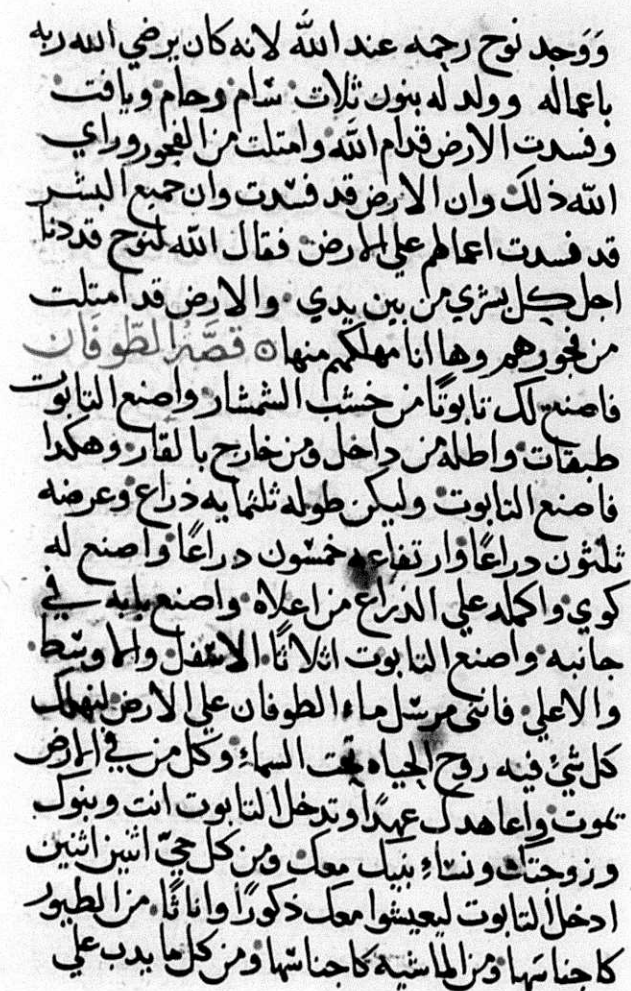 وَوَجد نوح رحمه عند الله لانه كان يرضي الله ربه
باعماله وولد له بنون ثلاث سام وحام ويافت
وفسدت الارض قدام الله وامتلت من الفجور وراي
الله ذلك وان الارض قد فسدت وان جميع البشر
قد فسدت اعمالهم علي الارض فقال الله لنوح قد دنا
اجل كل بشري من بين يدي والارض قد امتلت
من فجورهم وها انا مهلكهم منها قصة الطوفان
فاصنع لك تابوتًا من خشب الشمشار واصنع التابوت
طبقات واطله من داخل ومن خارج بالقار وهكدا
فاصنع التابوت وليكن طوله ثلثمايه ذراع وعرضه
ثلثون دراعًا وارتفاعه خمسون دراعًا واصنع له
كوي واكمله علي الدراع من اعلاه واصنع بابه في
جانبه واصنع التابوت اثلاثًا الاسفل والاوسط
والاعلي فانني مرسل ماء الطوفان علي الارض ليهلك
كل شئ فيه روح الحياه تحت السماء وكل من في الارض
يموت واعاهدك عهدًا وتدخل التابوت انت وبنوك
وزوجتك ونساء بنيك معك ومن كل حيّ اثنين اثنين
ادخل التابوت ليعيشوا معك ذكورًا واناثًا من الطيور
كاجناسها ومن الماشيه كاجناسها ومن كل ما يدب علي